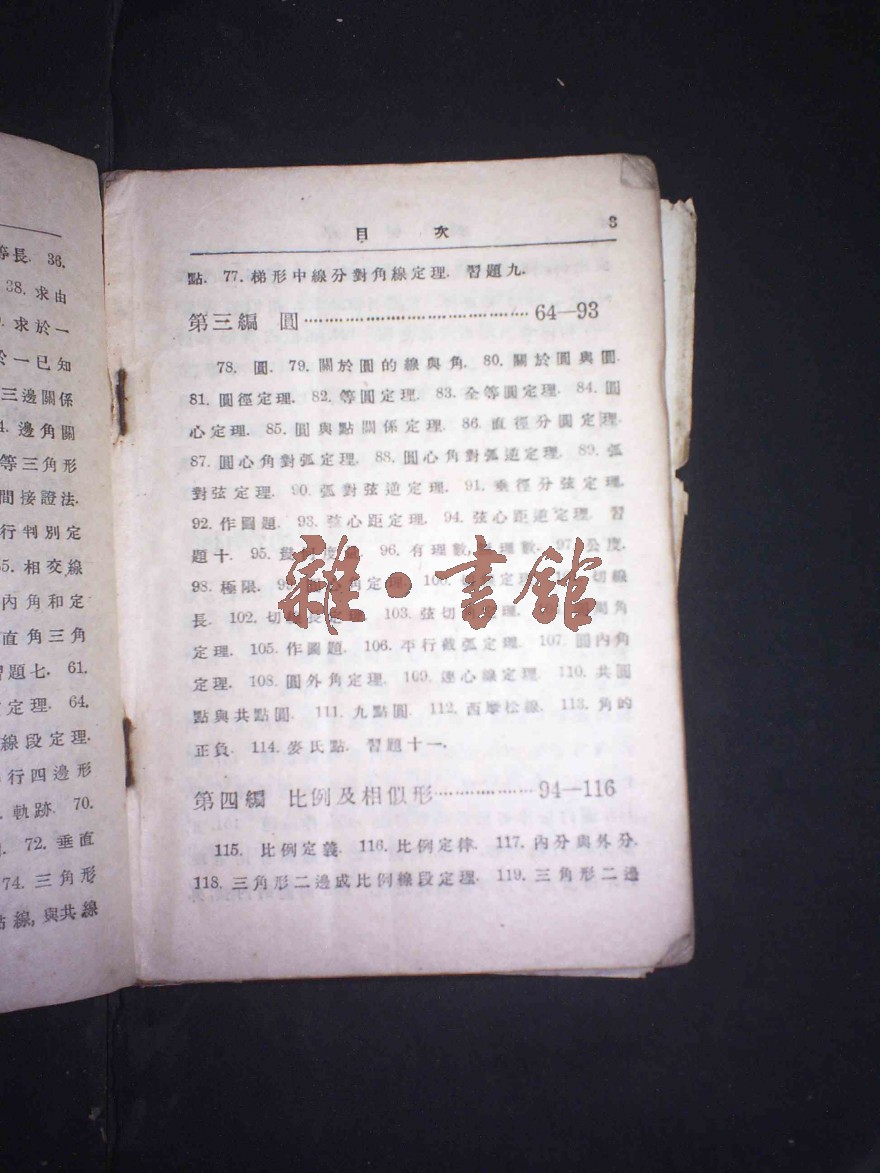 等長. 36.
38. 求由
求於一
於一已知
三邊關係
邊角關
等三角形
間接證法.
行判別定
55. 相交線
內角和定
直角三角
習題七. 61.
定理. 64.
線段定理.
行四邊形
軌跡. 70.
72. 垂直
74. 三角形
線, 與共線
目 次 3
點. 77. 梯形中線分對角線定理. 習題九.
第三編 圓 64—93
78. 圓. 79. 關於圓的線與角. 80. 關於圓與圓.
81. 圓徑定理. 82. 等圓定理. 83. 全等圓定理. 84. 圓
心定理. 85. 圓與點關係定理. 86. 直徑分圓定理.
87. 圓心角對弧定理. 88. 圓心角對弧逆定理. 89. 弧
對弦定理. 90. 弧對弦逆定理. 91. 垂徑分弦定理.
92. 作圖題. 93. 弦心距定理. 94. 弦心距逆定理. 習
題十. 95. 96. 有理數, 無理數. 97. 公度.
98. 極限. 99. 定理. 100. 定理. 切線
長. 102. 切線長定理. 103. 弦切 定理. 周角
定理. 105. 作圖題. 106. 平行截弧定理. 107. 圓內角
定理. 108. 圓外角定理. 109. 連心線定理. 110. 共圓
點與共點圓. 111. 九點圓. 112. 西摩松線. 113. 角的
正負. 114. 麥氏點. 習題十一.
第四編 比例及相似形 94—116
115. 比例定義. 116. 比例定律. 117. 內分與外分.
118. 三角形二邊成比例線段定理. 119. 三角形二邊
雜·書館